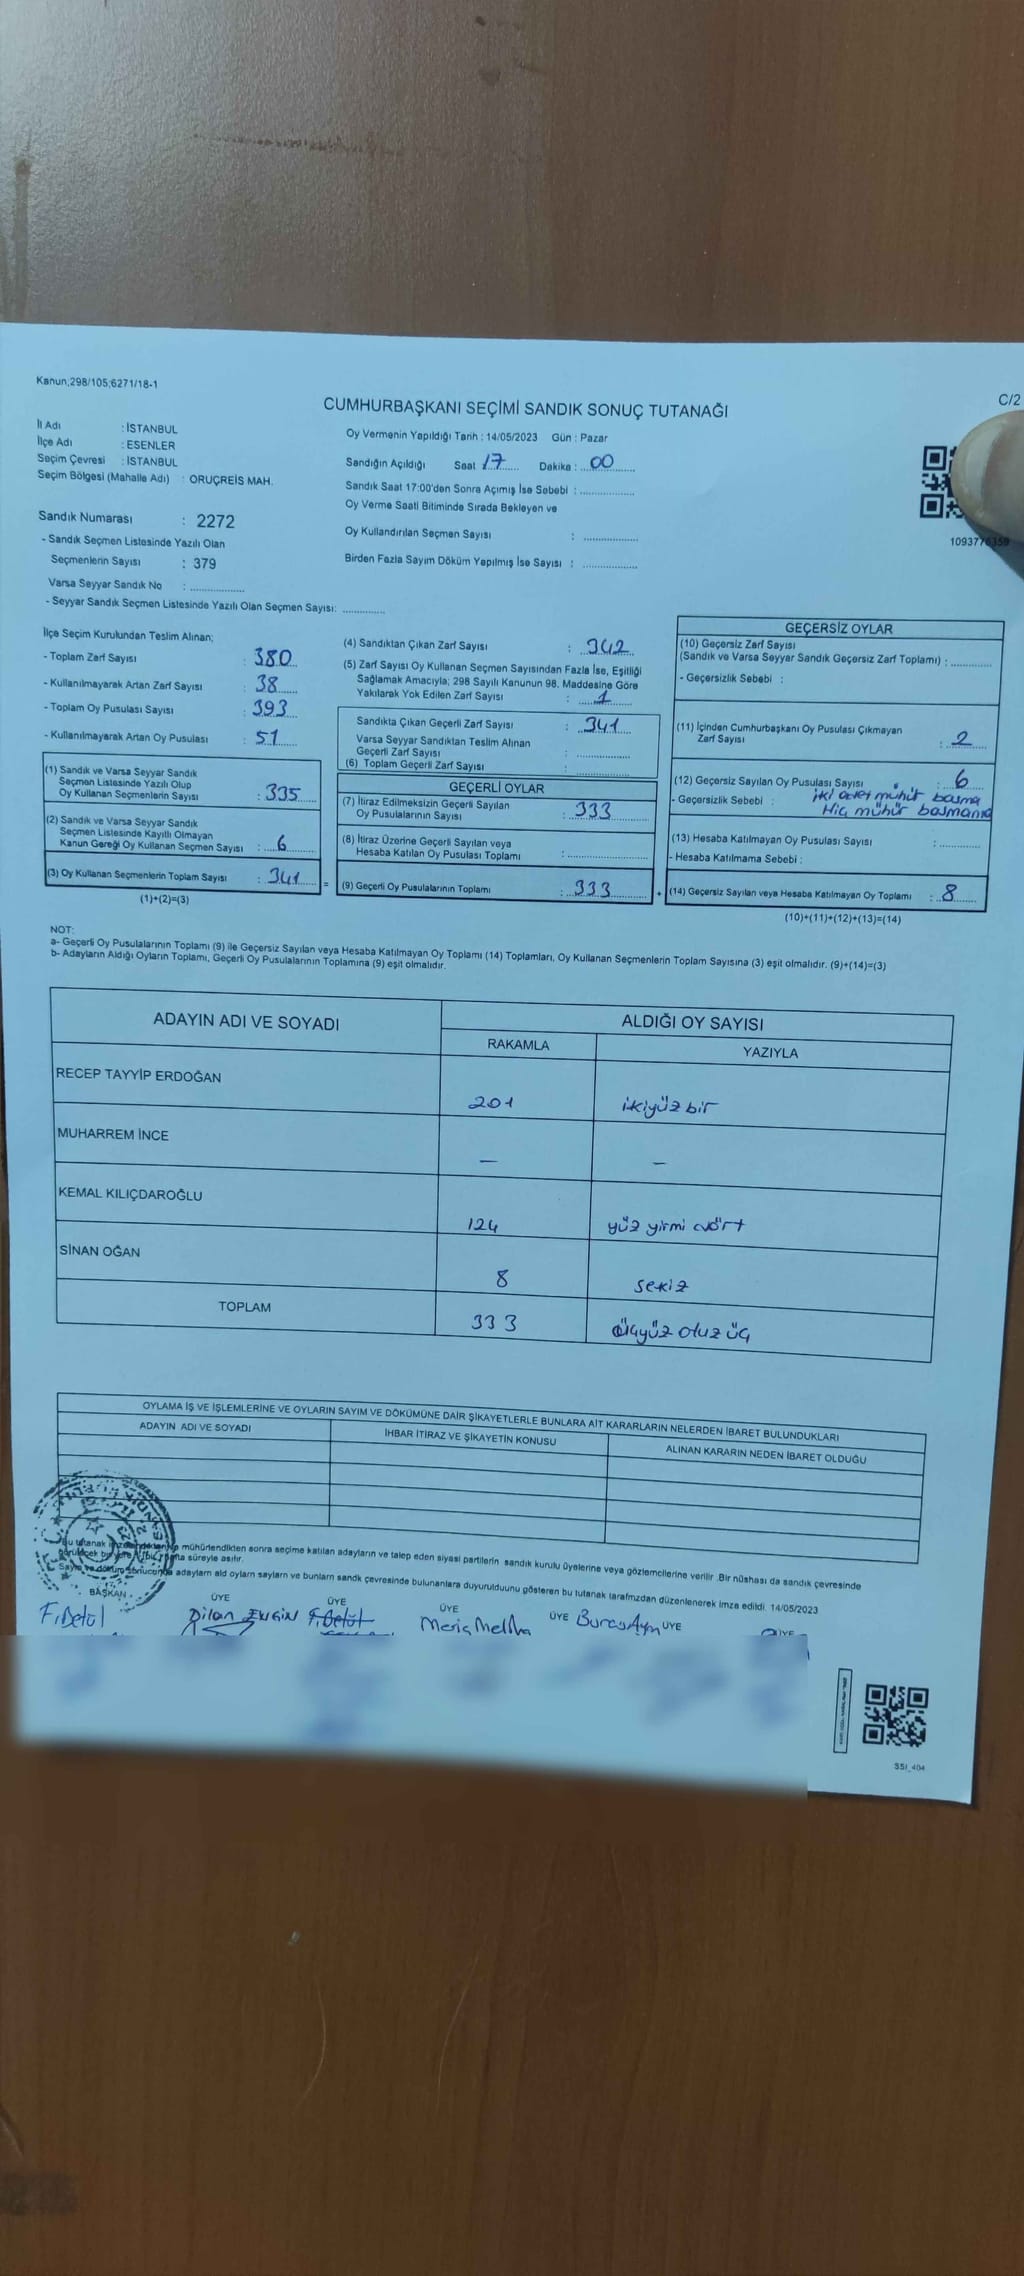 Kanun;298/105;6271/18-1
C/2
CUMHURBAŞKANI SEÇİMİ SANDIK SONUÇ TUTANAĞI
İl Adı : İSTANBUL
İlçe Adı : ESENLER
Seçim Çevresi : İSTANBUL
Seçim Bölgesi (Mahalle Adı) : ORUÇREİS MAH.
Oy Vermenin Yapıldığı Tarih : 14/05/2023 Gün : Pazar
Sandığın Açıldığı Saat 17 Dakika : 00
Sandık Saat 17:00'den Sonra Açımış İse Sebebi :
Oy Verme Saati Bitiminde Sırada Bekleyen ve
Oy Kullandırılan Seçmen Sayısı :
Birden Fazla Sayım Döküm Yapılmış İse Sayısı :
Sandık Numarası : 2272
- Sandık Seçmen Listesinde Yazılı Olan
Seçmenlerin Sayısı : 379
Varsa Seyyar Sandık No :
- Seyyar Sandık Seçmen Listesinde Yazılı Olan Seçmen Sayısı:
İlçe Seçim Kurulundan Teslim Alınan;
- Toplam Zarf Sayısı : 380
- Kullanılmayarak Artan Zarf Sayısı : 38
- Toplam Oy Pusulası Sayısı : 393
- Kullanılmayarak Artan Oy Pusulası : 51
(1) Sandık ve Varsa Seyyar Sandık
Seçmen Listesinde Yazılı Olup
Oy Kullanan Seçmenlerin Sayısı : 335
(2) Sandık ve Varsa Seyyar Sandık
Seçmen Listesinde Kayıtlı Olmayan
Kanun Gereği Oy Kullanan Seçmen Sayısı : 6
(3) Oy Kullanan Seçmenlerin Toplam Sayısı : 341
(1)+(2)=(3)
(4) Sandıktan Çıkan Zarf Sayısı : 342
(5) Zarf Sayısı Oy Kullanan Seçmen Sayısından Fazla İse, Eşitliği
Sağlamak Amacıyla; 298 Sayılı Kanunun 98. Maddesine Göre
Yakılarak Yok Edilen Zarf Sayısı : 1
Sandıkta Çıkan Geçerli Zarf Sayısı : 341
Varsa Seyyar Sandıktan Teslim Alınan
Geçerli Zarf Sayısı :
(6) Toplam Geçerli Zarf Sayısı :
GEÇERLİ OYLAR
(7) İtiraz Edilmeksizin Geçerli Sayılan
Oy Pusulalarının Sayısı : 333
(8) İtiraz Üzerine Geçerli Sayılan veya
Hesaba Katılan Oy Pusulası Toplamı :
= (9) Geçerli Oy Pusulalarının Toplamı : 333
GEÇERSİZ OYLAR
(10) Geçersiz Zarf Sayısı
(Sandık ve Varsa Seyyar Sandık Geçersiz Zarf Toplamı) :
- Geçersizlik Sebebi :
(11) İçinden Cumhurbaşkanı Oy Pusulası Çıkmayan
Zarf Sayısı : 2
(12) Geçersiz Sayılan Oy Pusulası Sayısı : 6
- Geçersizlik Sebebi : iki adet mühür basma
Hiç mühür basmama
(13) Hesaba Katılmayan Oy Pusulası Sayısı :
- Hesaba Katılmama Sebebi :
+ (14) Geçersiz Sayılan veya Hesaba Katılmayan Oy Toplamı : 8
(10)+(11)+(12)+(13)=(14)
NOT:
a- Geçerli Oy Pusulalarının Toplamı (9) ile Geçersiz Sayılan veya Hesaba Katılmayan Oy Toplamı (14) Toplamları, Oy Kullanan Seçmenlerin Toplam Sayısına (3) eşit olmalıdır. (9)+(14)=(3)
b- Adayların Aldığı Oyların Toplamı, Geçerli Oy Pusulalarının Toplamına (9) eşit olmalıdır.
ADAYIN ADI VE SOYADI ALDIĞI OY SAYISI
RAKAMLA YAZIYLA
RECEP TAYYİP ERDOĞAN 201 ikiyüz bir
MUHARREM İNCE — —
KEMAL KILIÇDAROĞLU 124 yüz yirmi dört
SİNAN OĞAN 8 sekiz
TOPLAM 333 üçyüz otuz üç
OYLAMA İŞ VE İŞLEMLERİNE VE OYLARIN SAYIM VE DÖKÜMÜNE DAİR ŞİKAYETLERLE BUNLARA AİT KARARLARIN NELERDEN İBARET BULUNDUKLARI
ADAYIN ADI VE SOYADI İHBAR İTİRAZ VE ŞİKAYETİN KONUSU ALINAN KARARIN NEDEN İBARET OLDUĞU
Bu tutanak mühürlendikten sonra seçime katılan adayların ve talep eden siyasi partilerin sandık kurulu üyelerine veya gözlemcilerine verilir .Bir nüshası da sandık çevresinde
süreyle asılır.
adayların ald oyların sayların ve bunların sandk çevresinde bulunanlara duyuruldunu gösteren bu tutanak tarafmzdan düzenlenerek imza edildi. 14/05/2023
BAŞKAN ÜYE ÜYE ÜYE ÜYE ÜYE ÜYE
F.Betül Dilan F.Betül Meliha
SSI_404